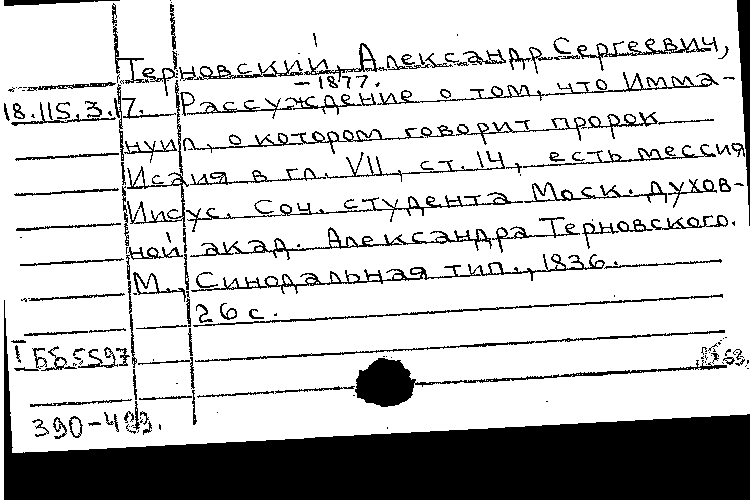 Терновский, Александр Сергеевич,
– 1877.
18.115.3.17. Рассуждение о том, что Имма-
нуил, о котором говорит пророк
Исаия в гл. VII, ст. 14, есть мессия
Иисус. Соч. студента Моск. духов-
ной акад. Александра Терновского.
М., Синодальная тип., 1836.
26 с.
I ББ5597
390-499.